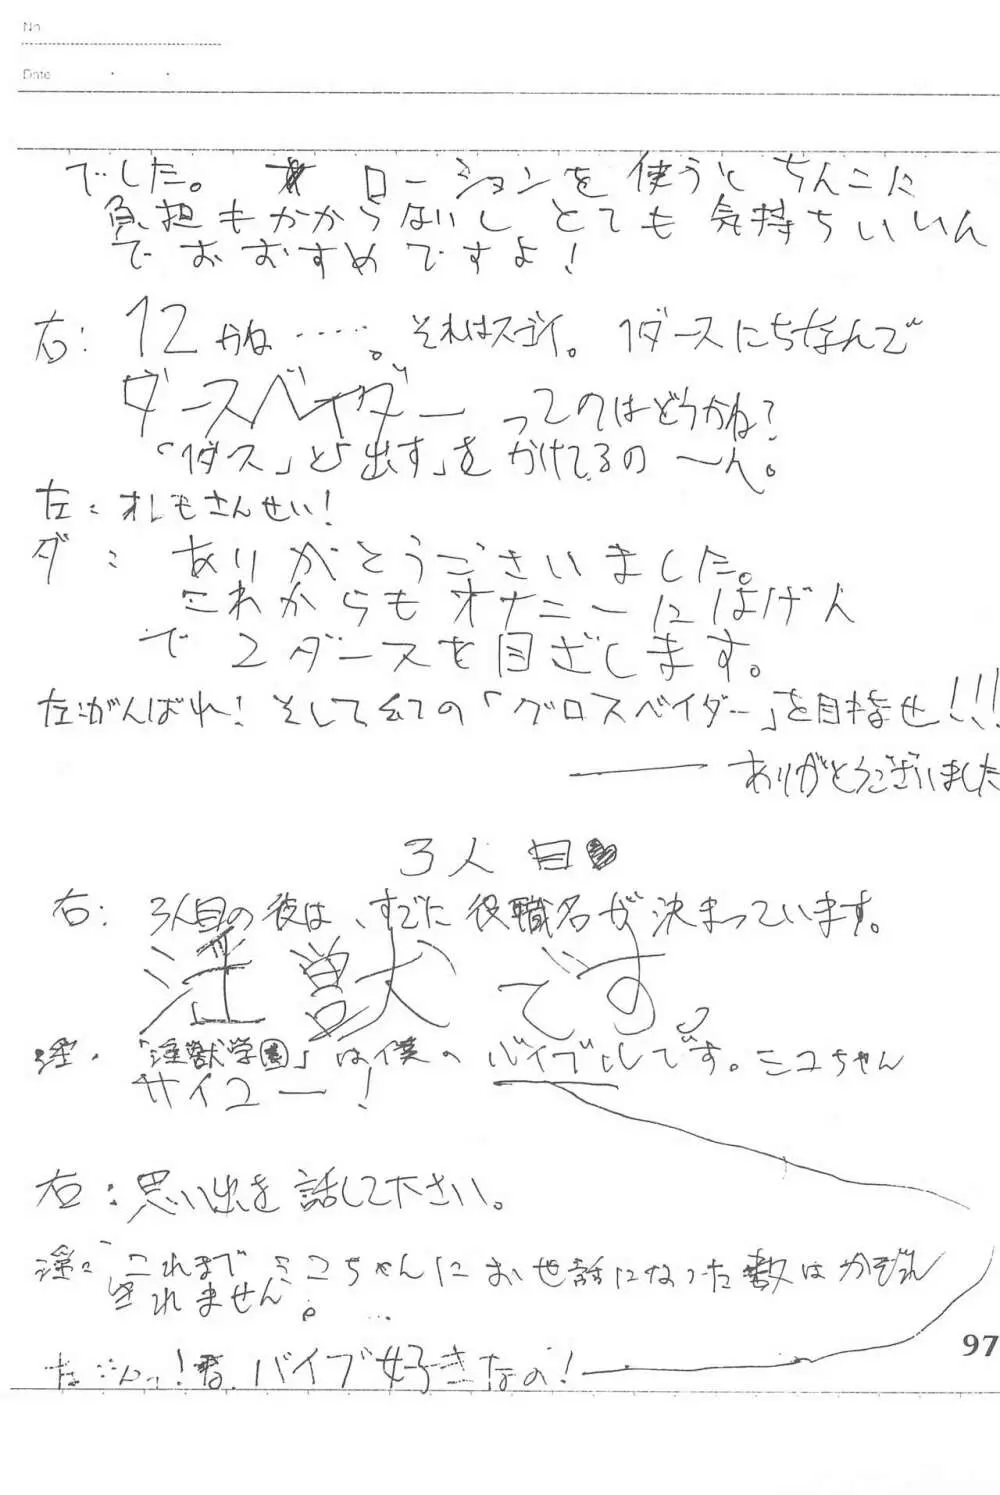 No.
Date ・ ・
でした。 ローションを使うとちんこに
負担もかからないし とても気持ちいいん
でおおすすめですよ!
右: 12かね……。それはスゴイ。1ダースにちなんで
ダースベイダーってのはどうかね?
「1ダス」と「出す」をかけてるの〜ん。
左:オレもさんせい!
ダ: ありがとうございました。
これからもオナニーにはげん
で2ダースを目ざします。
左:がんばれ!そしては「グロスベイダー」を目指せ!!!
ありがとうございました
3人目
右: 3人目の彼は、すでに役職名が決まっています。
淫獣です。
淫:「淫獣学園」は僕のバイブルです。ミユちゃん
サイコー!
右:思い出を話して下さい。
淫:これまでミユちゃんにお世話になった数はかぞえ
きれません。…
左:んっ!君、バイブ好きなの!
97